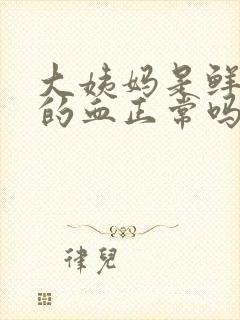 大姨妈是鲜
的血正常吗
律兒